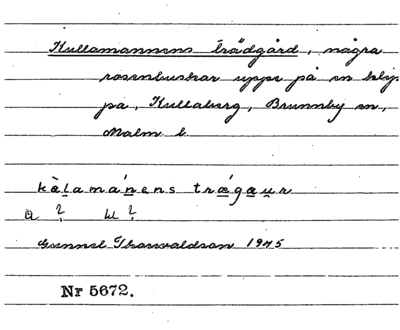 Kullamannens trädgård, några
rosenbuskar uppe på en klip-
pa, Kullaberg, Brunnby sn,
Malm. l.
kàlamánens trágaur
a ? u ?
Gunnel Thorvaldson 1945
Nr 5672.